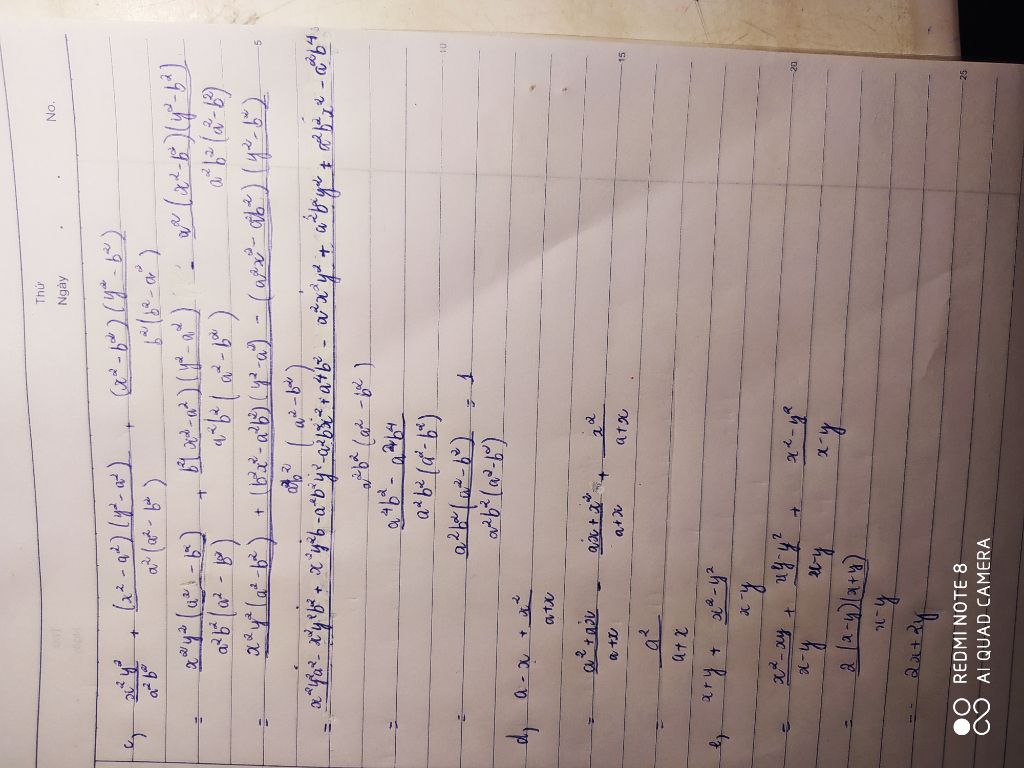 Thứ
Ngày
No.
c) x²y²/a²b² + (x²-a²)(y²-a²)/a²(a²-b²) + (x²-b²)(y²-b²)/b²(b²-a²)
= x²y²(a²-b²)/a²b²(a²-b²) + b²(x²-a²)(y²-a²)/a²b²(a²-b²) - a²(x²-b²)(y²-b²)/a²b²(a²-b²)
5
= x²y²(a²-b²) + (b²x²-a²b²)(y²-a²) - (a²x²-a²b²)(y²-b²)/a²b²(a²-b²)
a²b²(a²-b²)
= a⁴b²-a²b⁴/a²b²(a²-b²)
10
= a²b²(a²-b²)/a²b²(a²-b²) = 1
d) a-x + x²/a+x
= a²+ax/a+x - ax+x²/a+x + x²/a+x
15
= a²/a+x
e) x+y + x²-y²/x-y
= x²-xy/x-y + xy-y²/x-y + x²-y²/x-y
20
= 2(x-y)(x+y)/x-y
= 2x+2y
25
REDMI NOTE 8
AI QUAD CAMERA